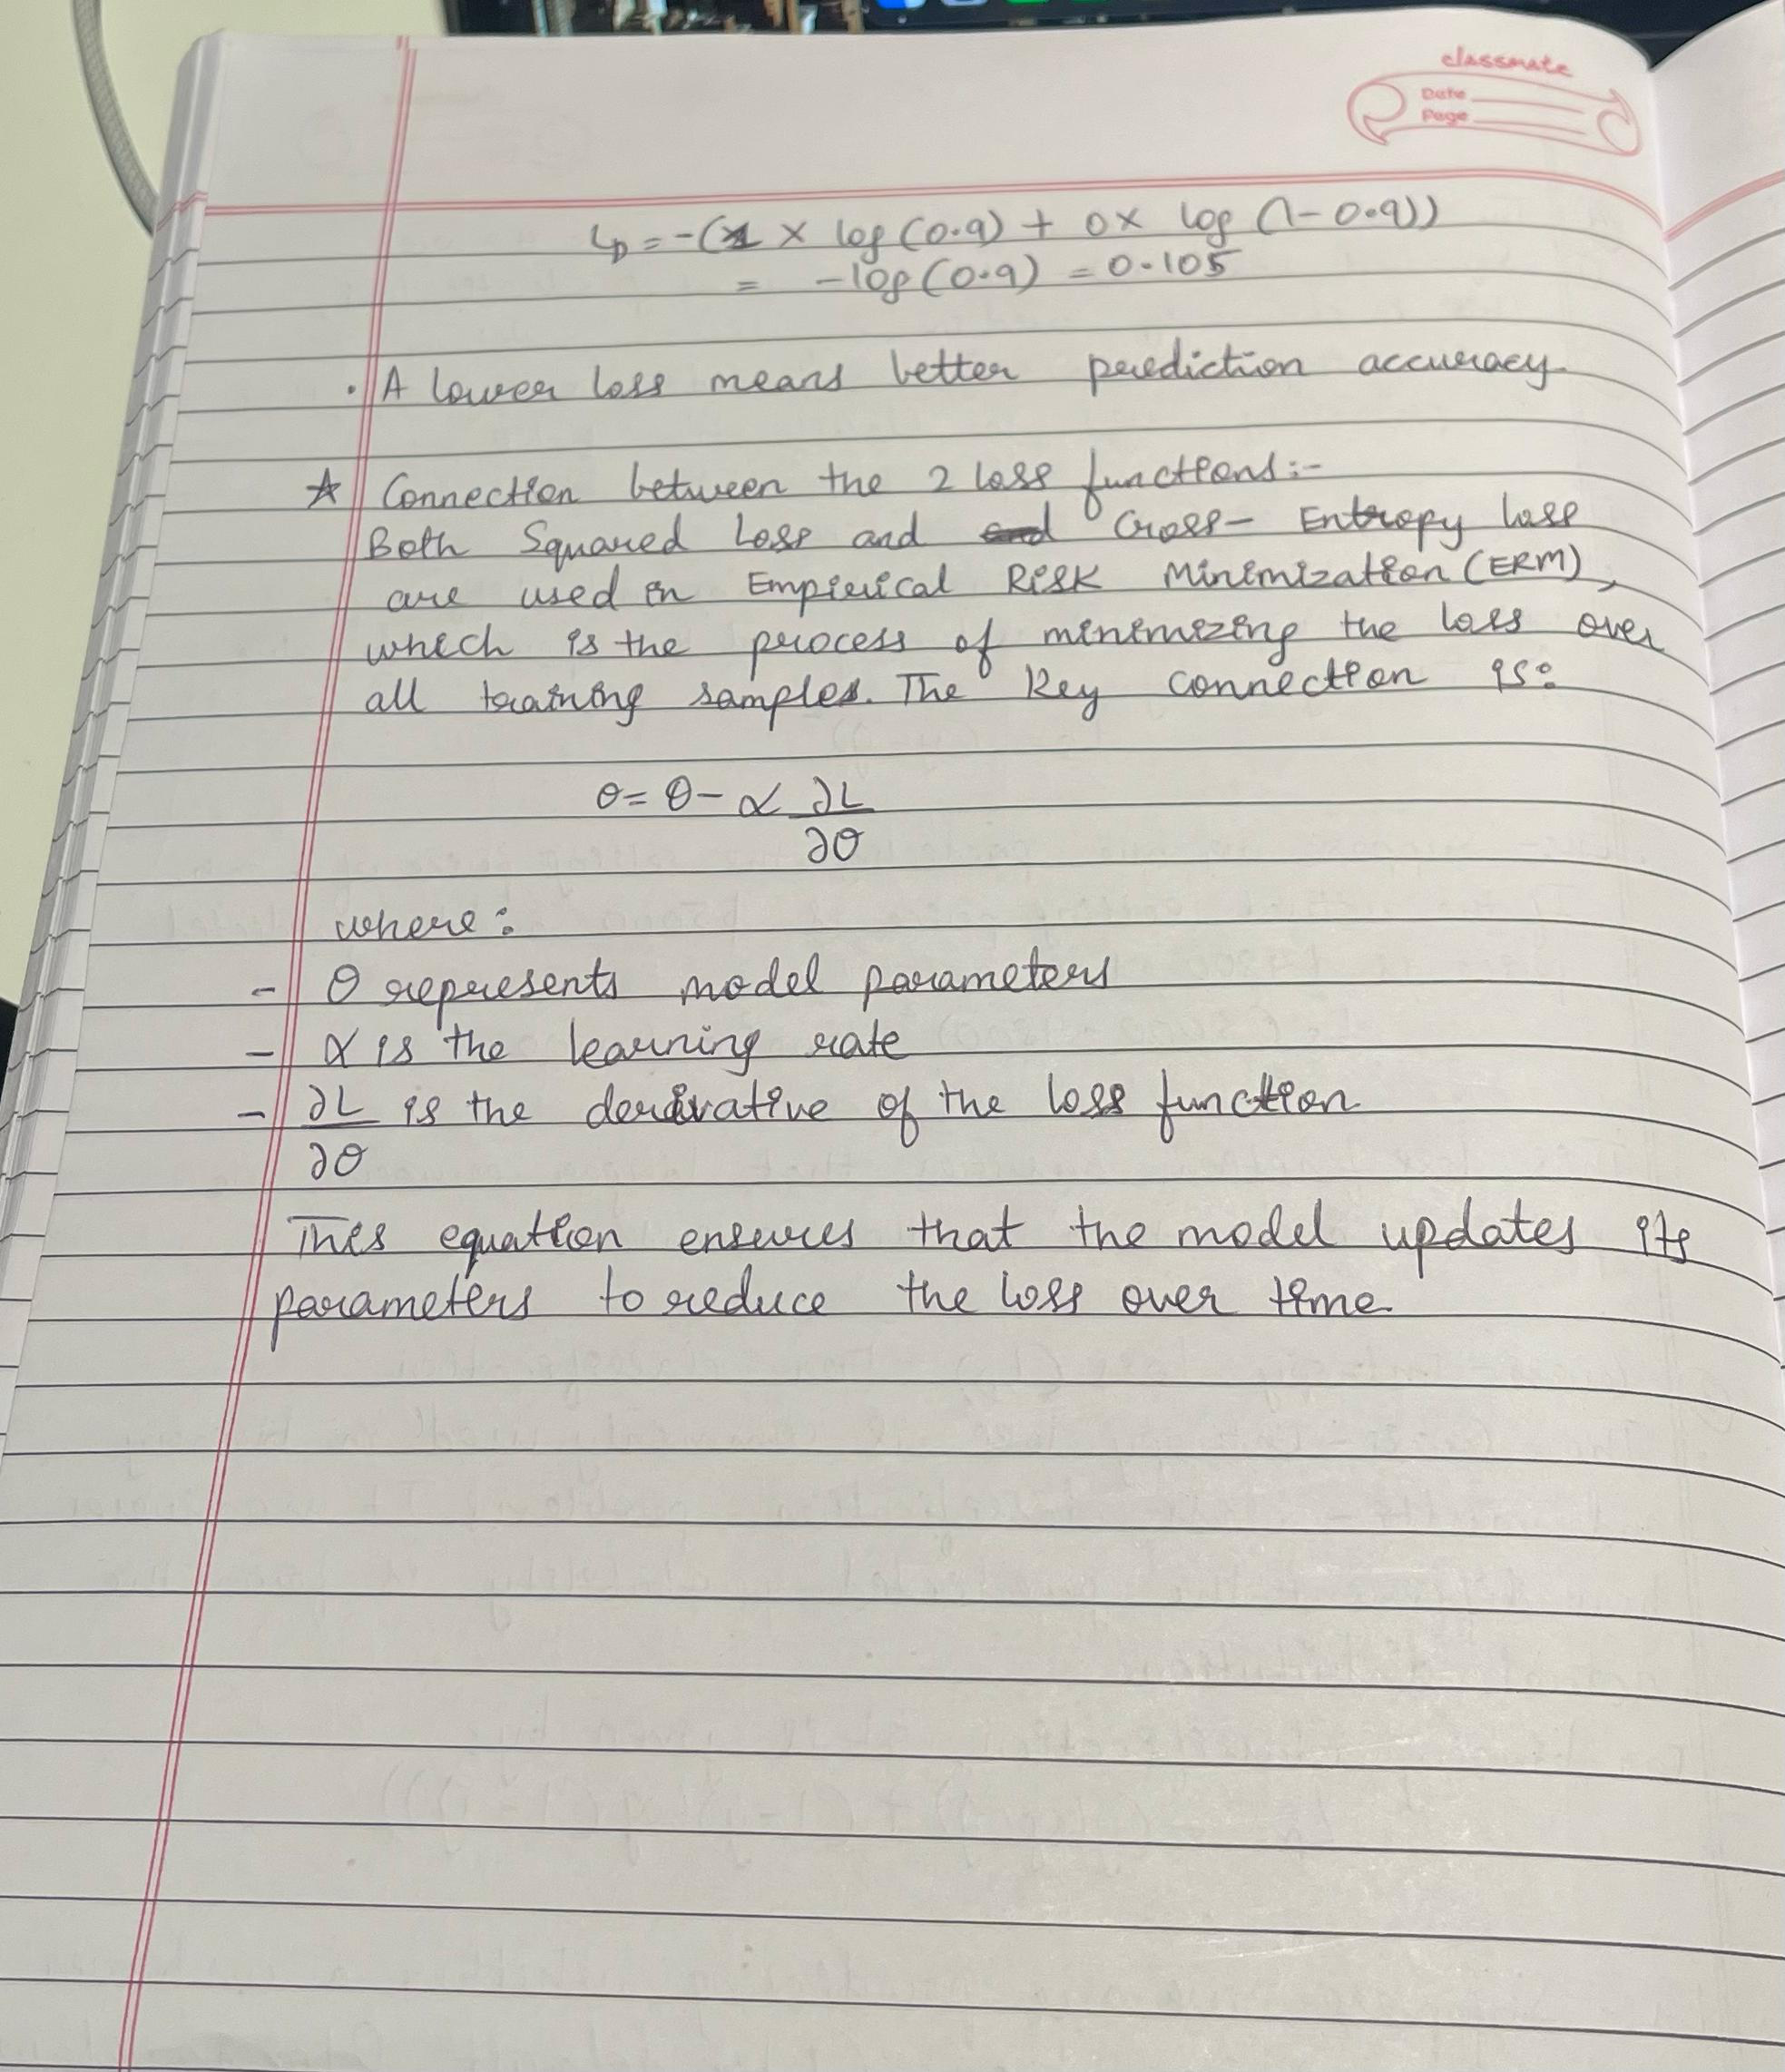 classmate
Date
Page
L_D = -(1 × log(0.9) + 0× log (1-0.9))
= -log(0.9) = 0.105
. A lower loss means better prediction accuracy.
☆ Connection between the 2 loss functions:-
Both Squared Loss and Cross- Entropy loss
are used in Empirical Risk Minimization (ERM),
which is the process of minimizing the loss over
all training samples. The key connection is:
θ = θ - α ∂L
∂θ
where:
- θ represents model parameters
- α is the learning rate
- ∂L is the derivative of the loss function
∂θ
This equation ensures that the model updates its
parameters to reduce the loss over time.